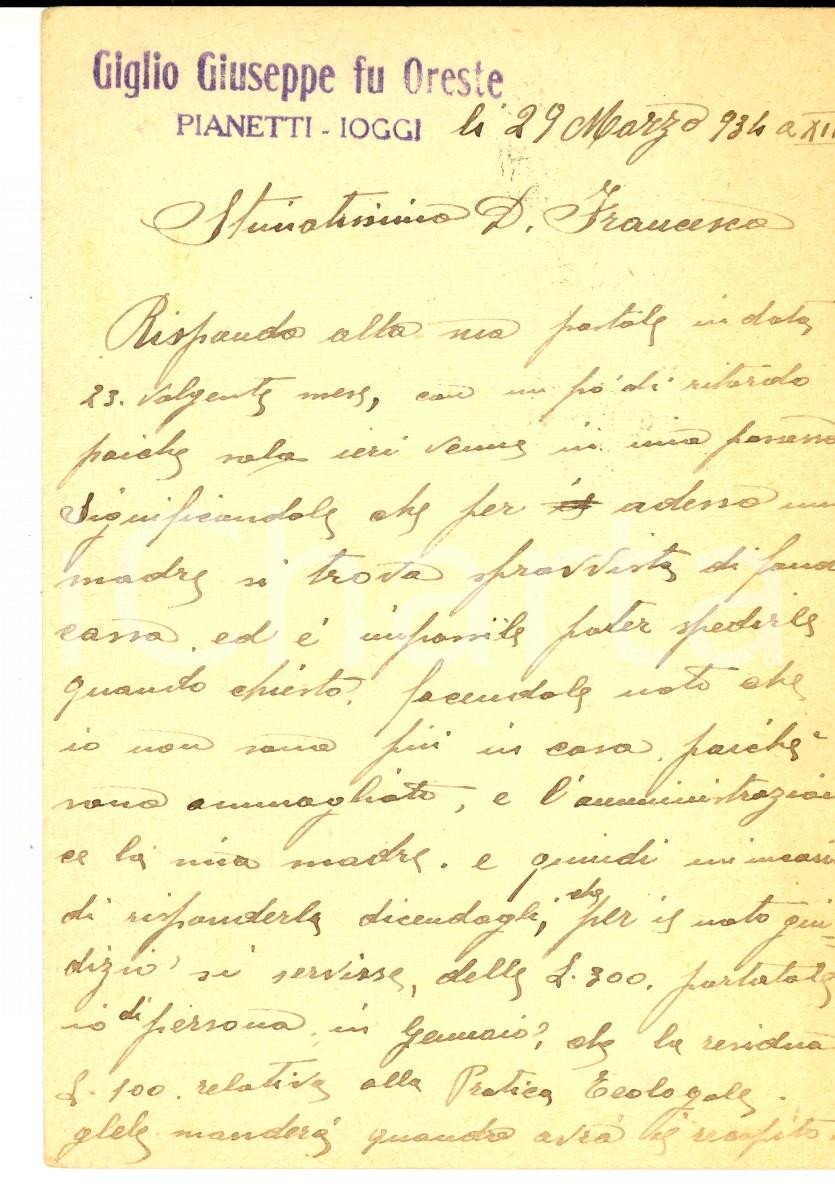 Giglio Giuseppe fu Oreste
PIANETTI - IOGGI li 29 Marzo 934 a XII
Stimatissimo D. Francesco
Rispondo alla sua postale in data
23. volgente mese, con un po' di ritardo
poiche solo ieri venne in mio possesso
Significandole che per adesso mia
madre si trova sprovvista di fondi
cassa, ed è impossile poter spedirle
quando chiesto. facendole noto che
io non sono più in casa. poichè
sono ammogliato, e l'amministrazion
ce la mia madre. e quindi
di risponderle dicendogli, che per il noto giu-
dizio si servisse, delle £. 300. portatole
io di persona in Gennaio, che la residua
£. 100. relative alla Pratica
glele manderà quando avrà il recapito.